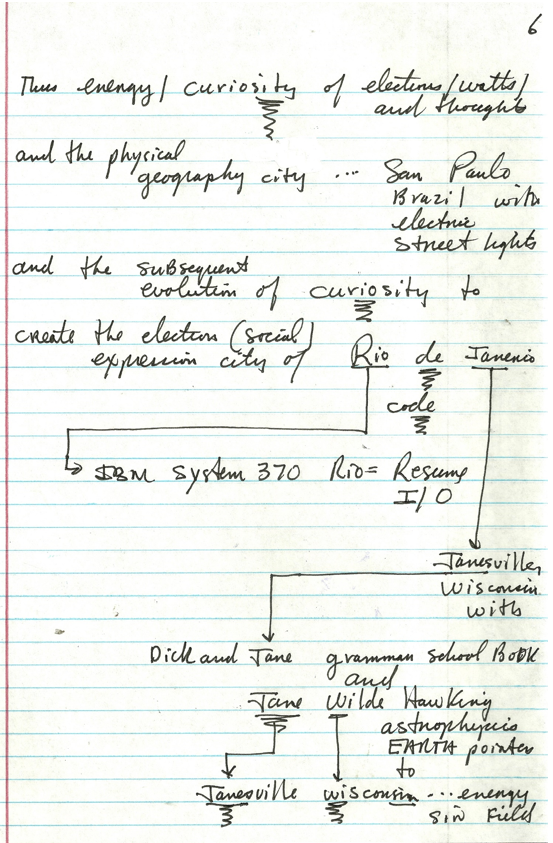 6
Thus energy/ curiosity of electrons/watts/
and thoughts
and the physical
geography city ... San Paulo
Brazil with
electric
street lights
and the subsequent
evolution of curiosity to
create the electron (social)
expression city of Rio de Janerio
code
IBM System 370 Rio = Resume
I/O
Janesville,
Wisconsin
with
Dick and Jane grammar school Book
and
Jane Wilde Hawking
astrophysics
EARTH pointer
to
Janesville wisconsin ... energy
sin field